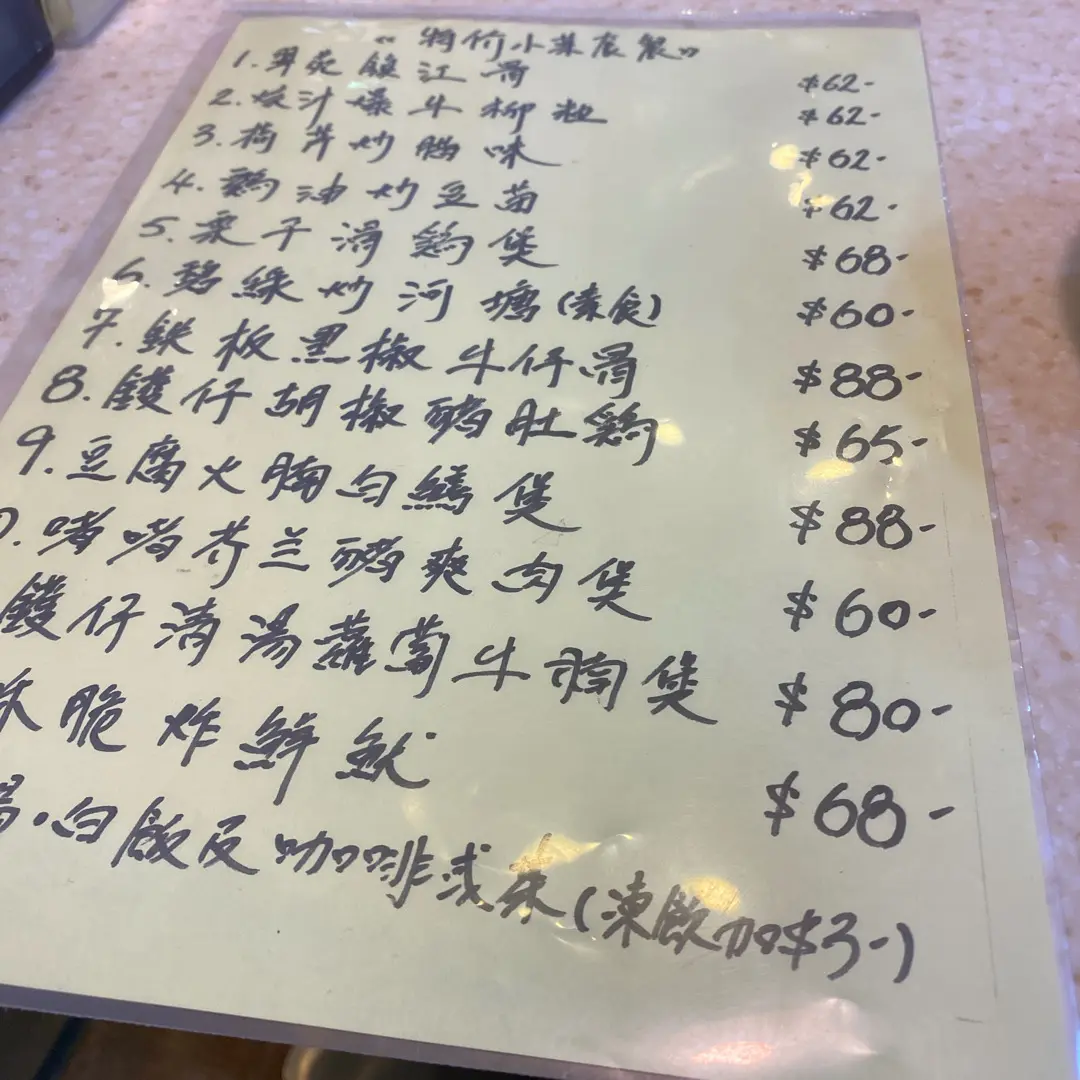 《特价小菜套餐》
1.翠苑鎮江骨 $62-
2.燒汁爆牛柳粒 $62-
3.荷芹炒腊味 $62-
4.鷄油炒豆苗 $62-
5.栗子滑鷄煲 $68-
6.碧綠炒河塘(素食) $60-
7.鉄板黑椒牛仔骨 $88-
8.鑊仔胡椒豬肚鷄 $65-
9.豆腐火腩白鱔煲 $88-
0.啫啫芥兰豬爽肉煲 $60-
鑊仔清湯蘿蔔牛腩煲 $80-
脆炸鮮魷 $68-
湯.白飯及咖啡或茶(凍飲加$3-)